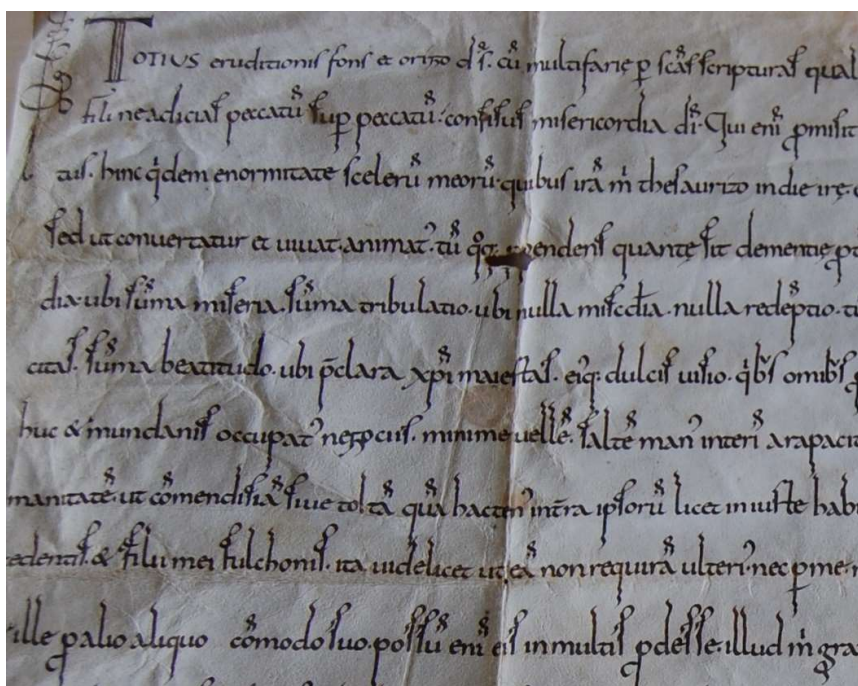 TOTIUS eruditionis fons et origo d̄s. cū multifarię ꝑ scās scripturas qual
fili ne adicias peccatū sup̄ peccatū. confisus misericordia dī. Qui enī ꝓmisit
tus. hinc q̇dem enormitate scelerū meorū. quibus irā m̄ thesaurizo in die irę
sed ut convertatur et uiuat. animat᾽. tū endens quantę sit dementię
dia. ubi sūma miseria. sūma tribulatio. ubi nulla mis̄cdīa. nulla redēptio.
citas. sūma beatitudo. ubi p̄clara xp̄i maiestas. ei᾽q; dulcis uisio. q̇bꝰs omībꝰs
huc & mundanis occupat᾽ negociis. minime uellē. saltē man᾽ interī a rapacit
manitatē. ut cōmendisiā siue toltā quā hacten᾽ int̄ra ipsorū licet iniuste habu
edentis. & filii mei fulchonis. ita uidelicet ut eā non requirā ulteri᾽. nec ꝑ me.
ille ꝓ alio aliquo cōmodo suo. possū enī eis in multis ꝓdesse. illud m̄ gra